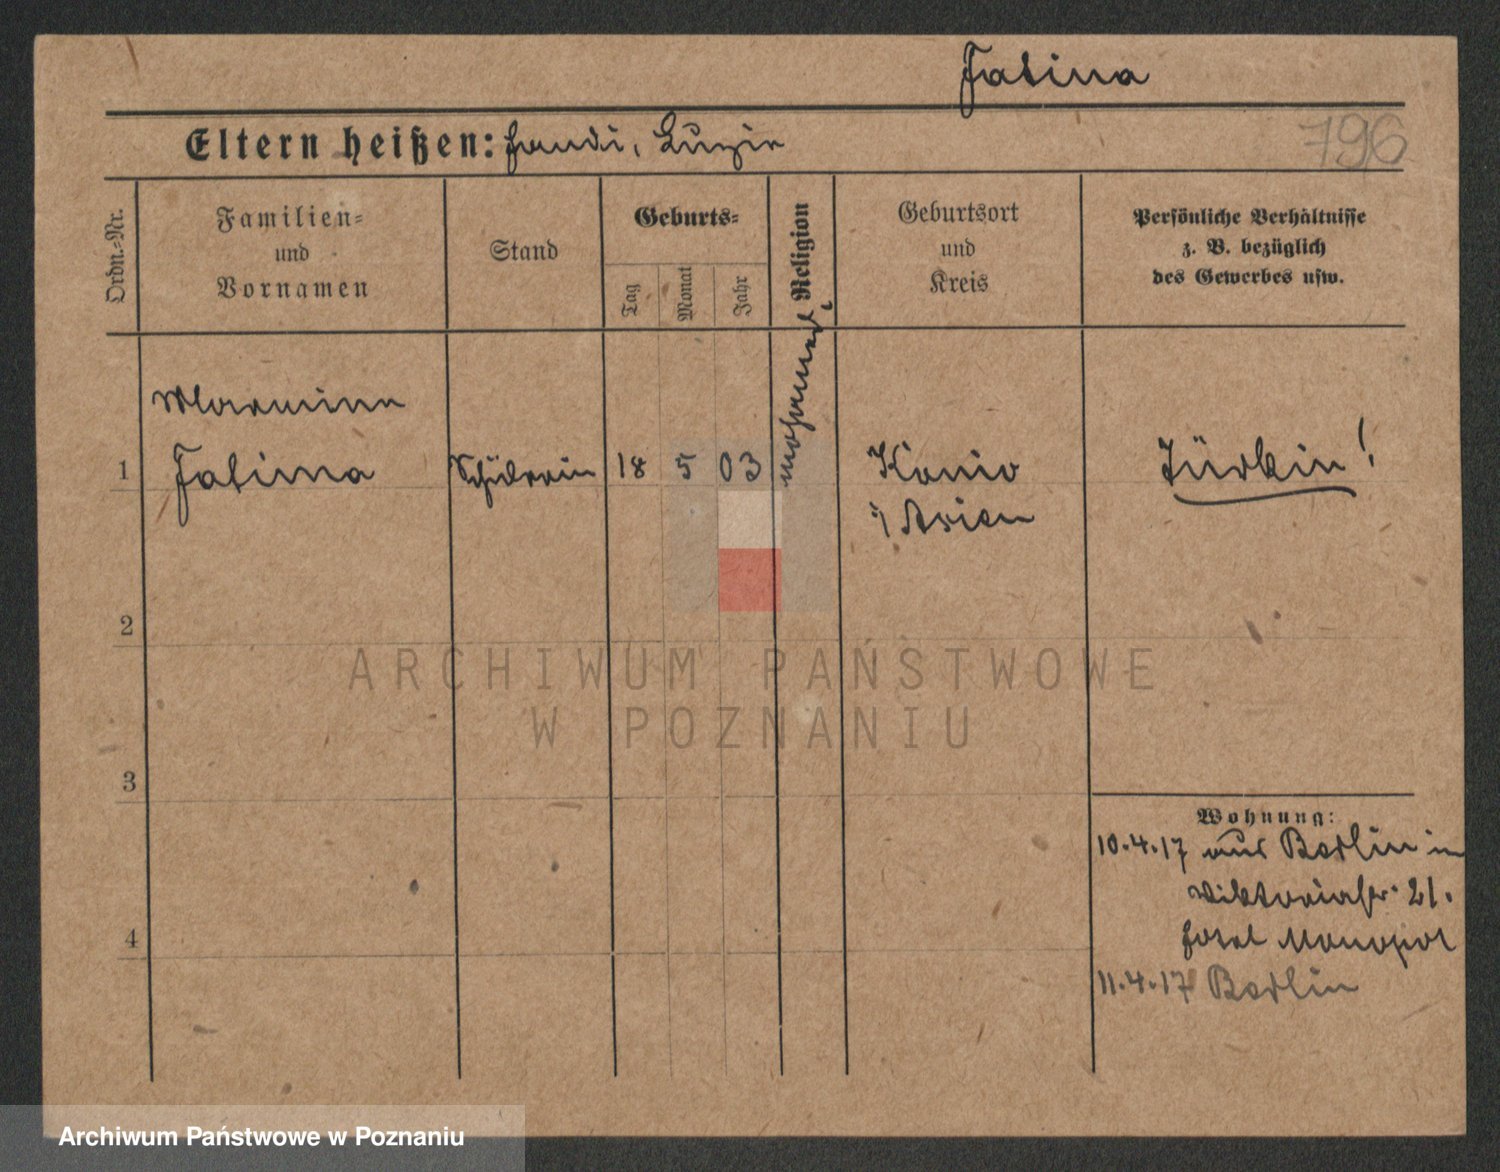 Fatima
Eltern heißen: Luzie
796
Ordn.-Nr.
Familien-
und
Vornamen
Stand
Geburts-
Tag
Monat
Jahr
Religion
Geburtsort
und
Kreis
Persönliche Verhältnisse
z. B. bezüglich
des Gewerbes usw.
1
Fatima
Schülerin
18
5
03
mohamed.
Konio
i/ Asien
Türkin!
2
3
4
Wohnung:
10.4.17 aus Berlin in
Viktoriastr. 21.
Hotel Monopol
11.4.17 Berlin
ARCHIWUM PAŃSTWOWE
W POZNANIU
Archiwum Państwowe w Poznaniu